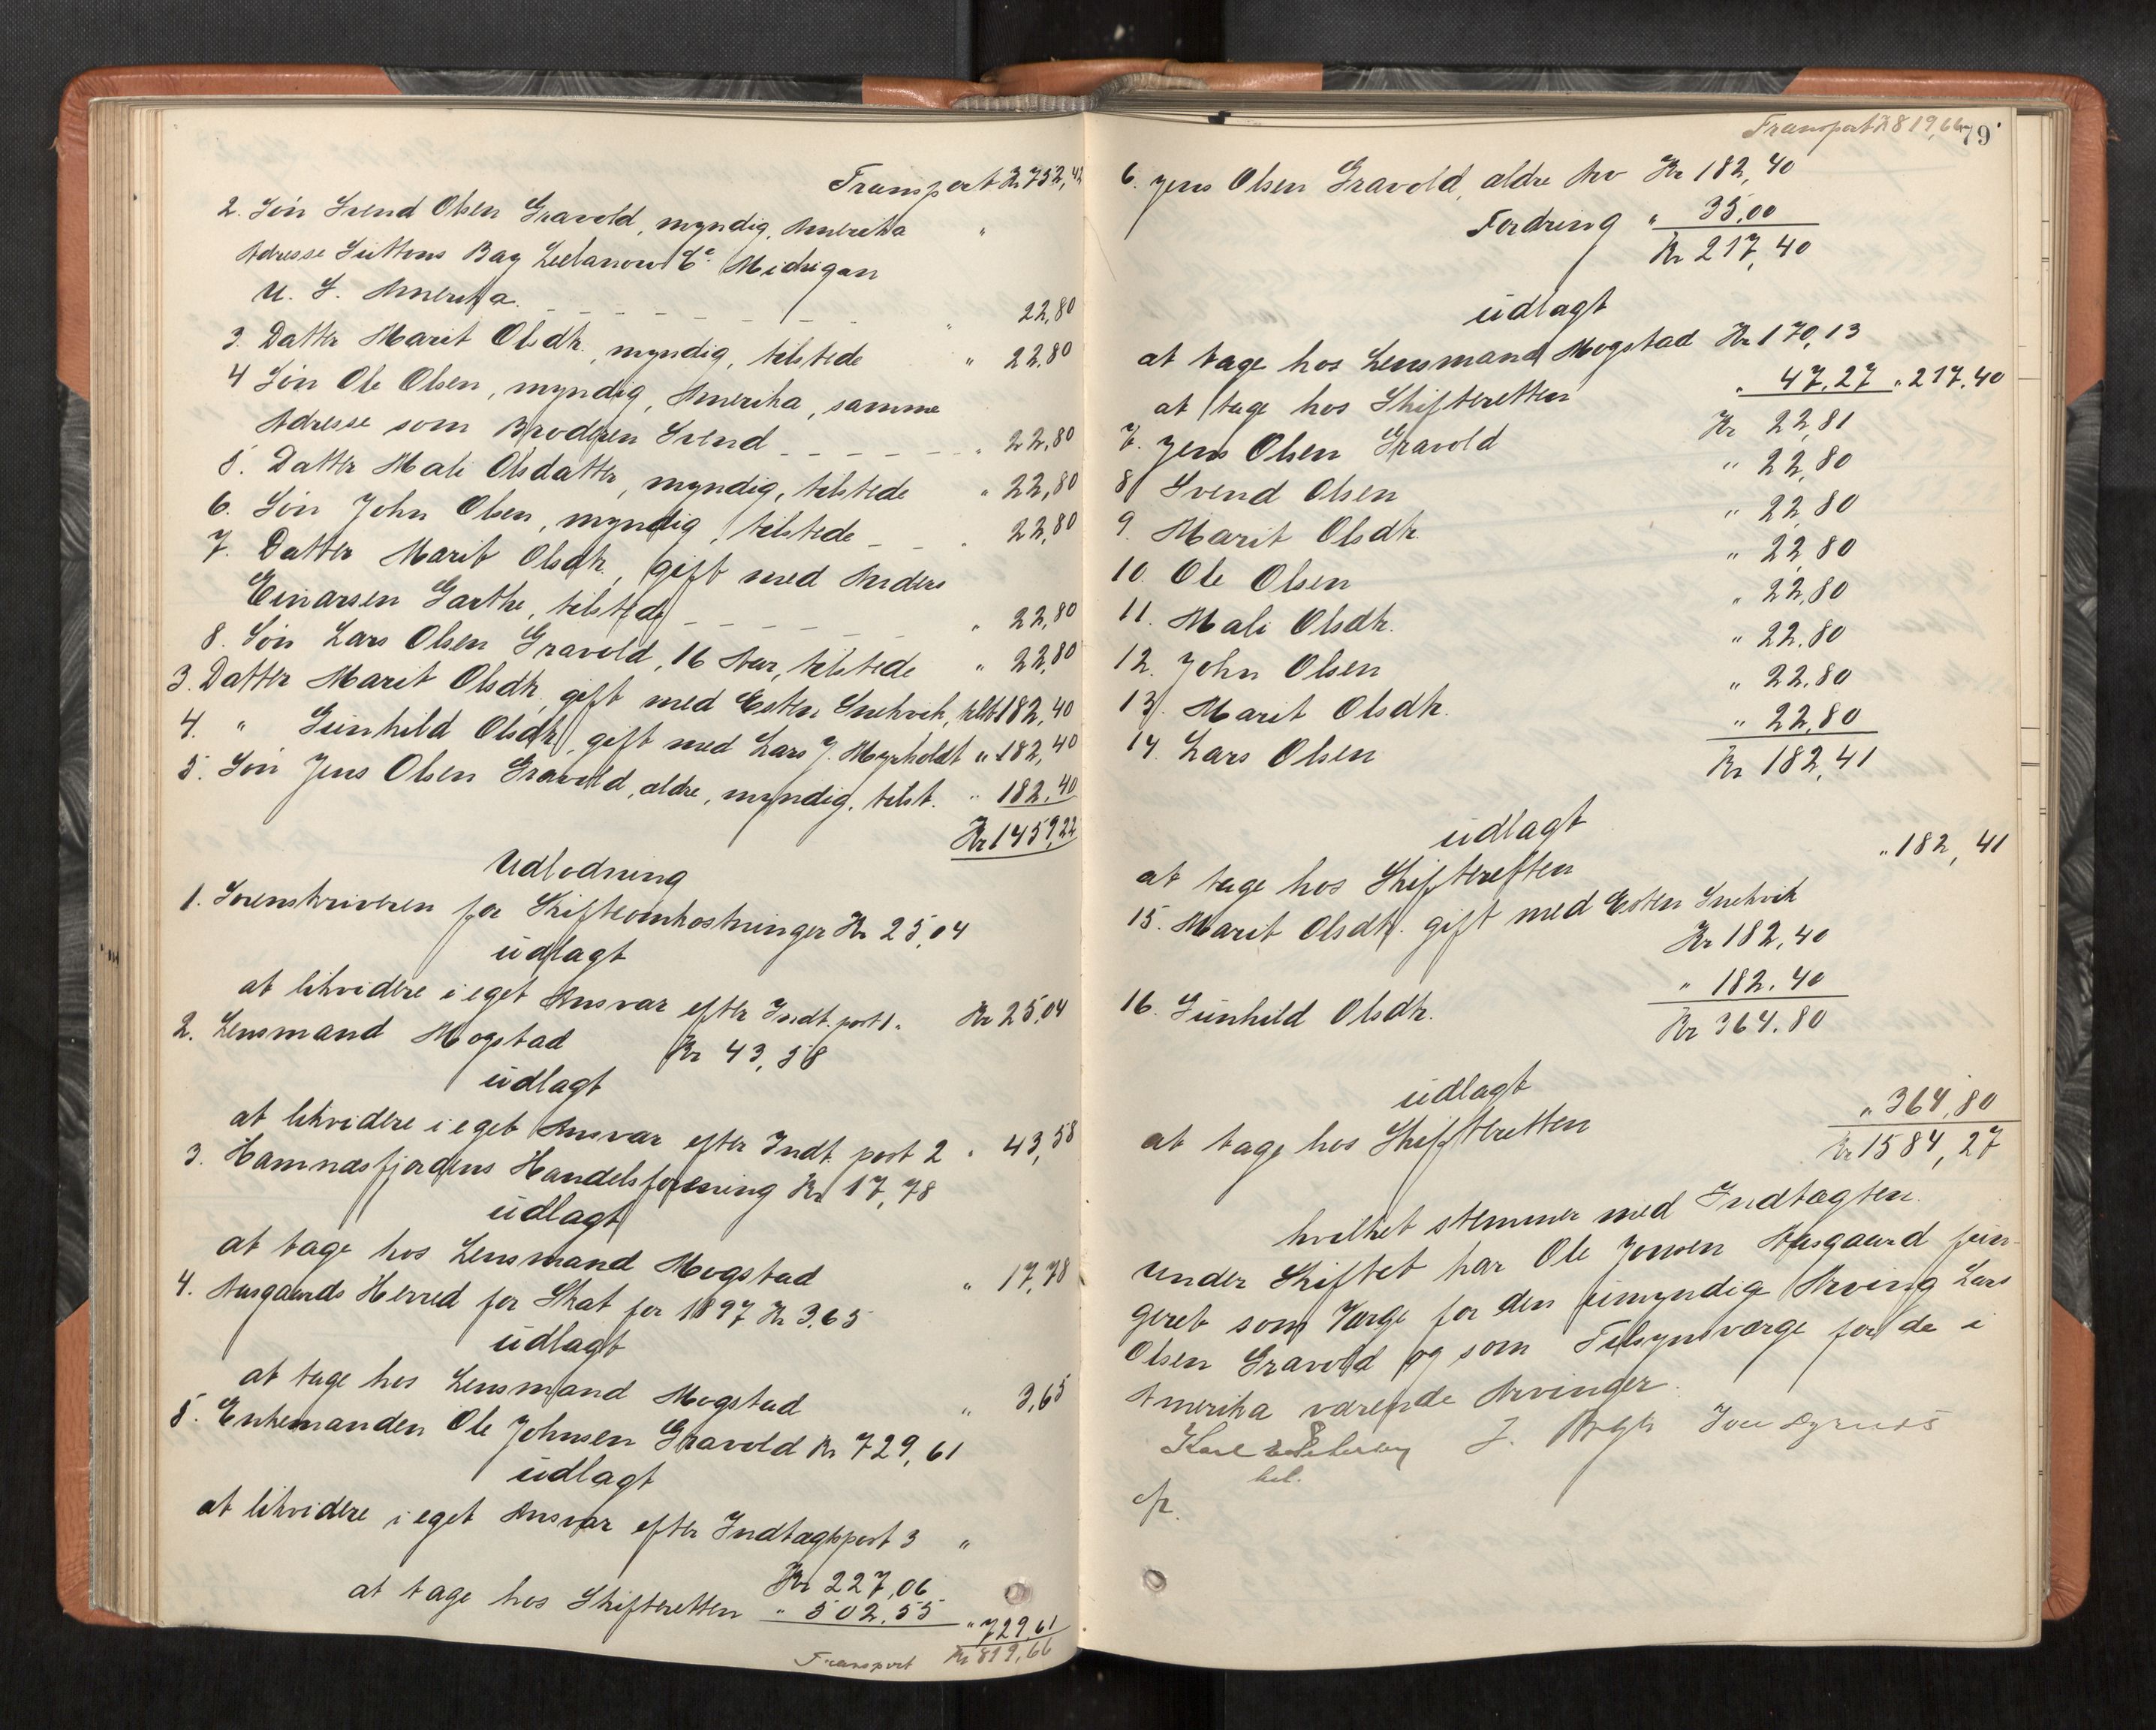 Transport Kr 752,42
2. Søn Svend Olsen Gravold, myndig, Amerika
Adresse Suttons Bay Leelanow Co Michigan
U. S. Amerika. " 22,80
3. Datter Marit Olsdtr., myndig, tilstede " 22,80
4 Søn Ole Olsen, myndig, Amerika, samme
Adresse som Broderen Svend " 22,80
5. Datter Mali Olsdatter, myndig, tilstede " 22,80
6. Søn John Olsen, myndig, tilstede " 22,80
7. Datter Marit Olsdtr., gift med Anders
Einarsen Garthe, tilstede " 22,80
8. Søn Lars Olsen Gravold, 16 Aar, tilstede " 22,80
3. Datter Marit Olsdtr, gift med Esten Snekvik, tilst " 182,40
4. " Gunhild Olsdtr, gift med Lars J. Myrholdt " 182,40
5. Søn Jens Olsen Gravold, ældre, myndig, tilst. " 182,40
Kr 1459,22
Udlodning
1. Sorenskriveren for Skifteomkostninger Kr 25,04
udlagt
at likvidere i eget Ansvar efter Indt. post 1. Kr 25,04
2. Lensmand Mogstad Kr 43,58
udlagt
at likvidere i eget Ansvar efter Indt. post 2 " 43,58
3. Hamnæsfjordens Handelsforening Kr 17,78
udlagt
at tage hos Lensmand Mogstad " 17,78
4. Aasgaards Herred for Skat for 1897 Kr 3,65
udlagt
at tage hos Lensmand Mogstad " 3,65
5. Enkemanden Ole Johnsen Gravold Kr 729,61
udlagt
at likvidere i eget Ansvar efter Indtægtspost 3 "
Kr 227,06
at tage hos Skifteretten " 502,55 " 729,61
Transport Kr 819,66
Transport Kr 819,66
79
6. Jens Olsen Gravold, ældre Arv Kr 182,40
Fordring " 35,00
Kr 217,40
udlagt
at tage hos Lensmand Mogstad Kr 170,13
at tage hos Skifteretten " 47,27 " 217,40
7. Jens Olsen Gravold Kr 22,81
8 Svend Olsen " 22,80
9. Marit Olsdtr. " 22,80
10. Ole Olsen " 22,80
11. Mali Olsdtr. " 22,80
12. John Olsen " 22,80
13. Marit Olsdtr. " 22,80
14. Lars Olsen " 22,80
Kr 182,41
udlagt
at tage hos Skifteretten " 182,41
15. Marit Olsdtr. gift med Esten Snekvik
Kr 182,40
16. Gunhild Olsdtr. " 182,40
Kr 364,80
udlagt
at tage hos Skifteretten " 364,80
Kr 1584,27
hvilket stemmer med Indtægten.
Under Skiftet har Ole Jonsen Aasgaard fun-
geret som Værge for den umyndig Arving Lars
Olsen Gravold og som Tilsynsværge for de i
Amerika værende Arvinger.
Karl